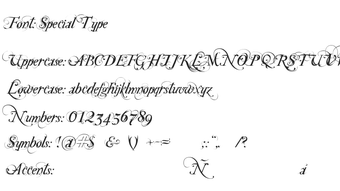 Font: Special Type
Uppercase: ABCDEFGHIJKLMNOPQRSTUV
Lowercase: abcdefghijklmnopqrstuvwxyz
Numbers: 0123456789
Symbols: !@#$ & \() +-= .,:;"', /?
Accents: Ñ á